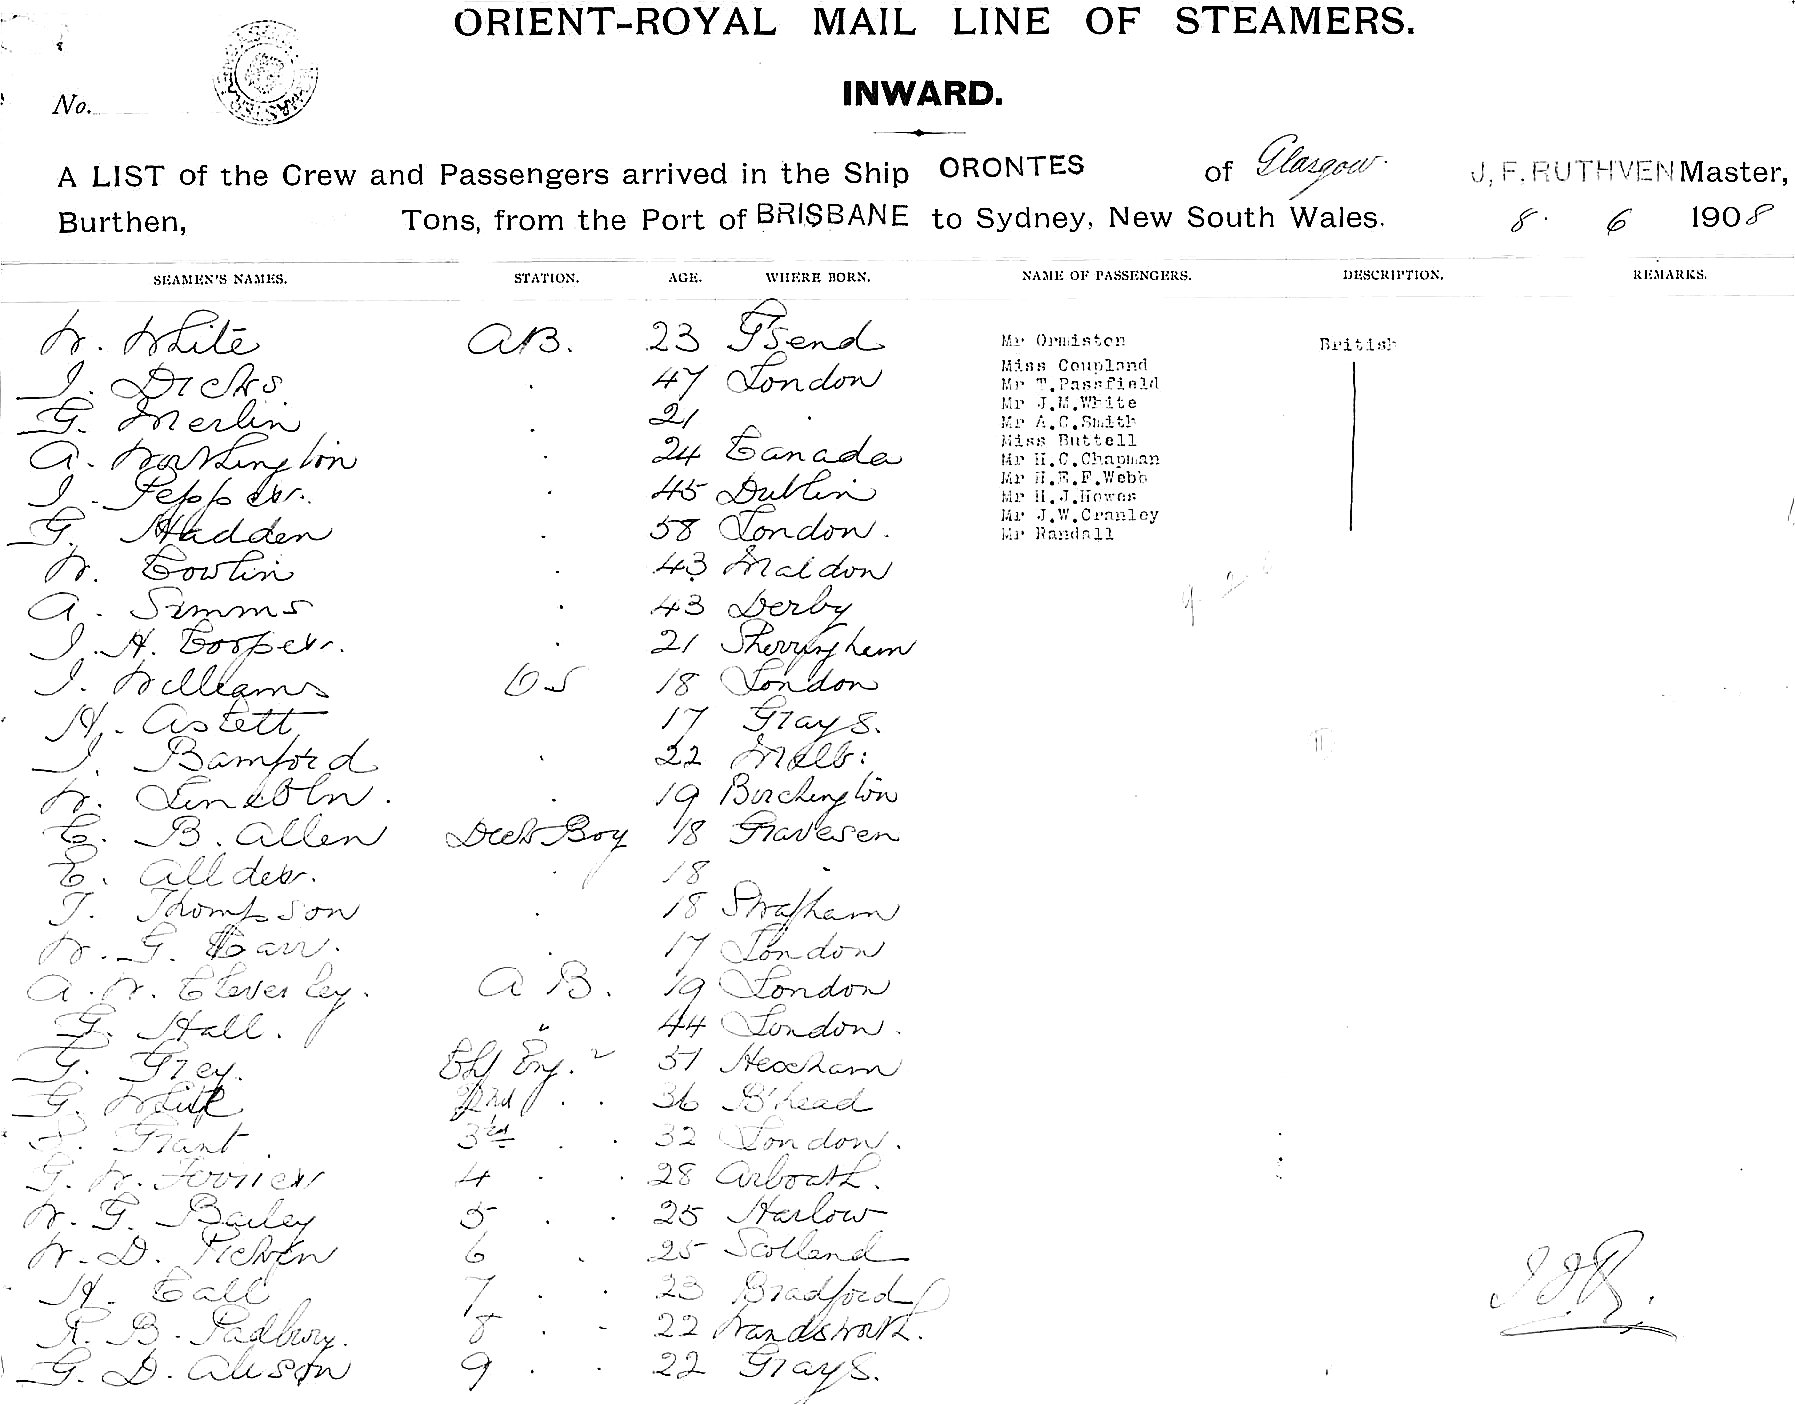 ORIENT-ROYAL MAIL LINE OF STEAMERS.
INWARD.
No.
A LIST of the Crew and Passengers arrived in the Ship ORONTES of Glasgow. J. F. RUTHVEN Master,
Burthen, Tons, from the Port of BRISBANE to Sydney, New South Wales. 8. 6 1908
SEAMEN'S NAMES. STATION. AGE. WHERE BORN. NAME OF PASSENGERS. DESCRIPTION. REMARKS.
W. White AB. 23 G'send Mr Ormiston British
Miss Coupland
J. Dicks. 47 London Mr T.Passfield
Mr J.M.White
G. Merlin 21 Mr A.C.Smith
Miss Buttell
A. Worthington 24 Canada Mr H.C.Chapman
Mr H.E.F.Webb
J. Pepper. 45 Dublin Mr H.J.Howes
Mr J.W.Cranley
G. Hadden 58 London. Mr Randall
W. Cowlin 43 Maldon
A. Simms 43 Derby
J. H. Cooper. 21 Sherringham
J. Williams OS 18 London
H. Astett 17 Grays.
J. Bamford 22 Melb:
W. Lincoln. 19 Birchington
C. B. Allen Deck Boy 18 Gravesen
E. Allder. 18
T. Thompson 18
W. G. Carr. 17 London
A. W. Cleverley. A B. 19 London
G. Hall. " 44 London.
G. Grey. Chf Eng. 51 Hexham
G. White 2nd 36 B'head
Grant 3rd 32 London.
G. W. 4 28 Arboath.
W. G. Bailey 5 25 Harlow
W. D. 6 25 Scotland
H. Call 7 23 Bradford
R. B. Padbury. 8 22 Wandsworth.
G. D. Alison 9 22 Grays.